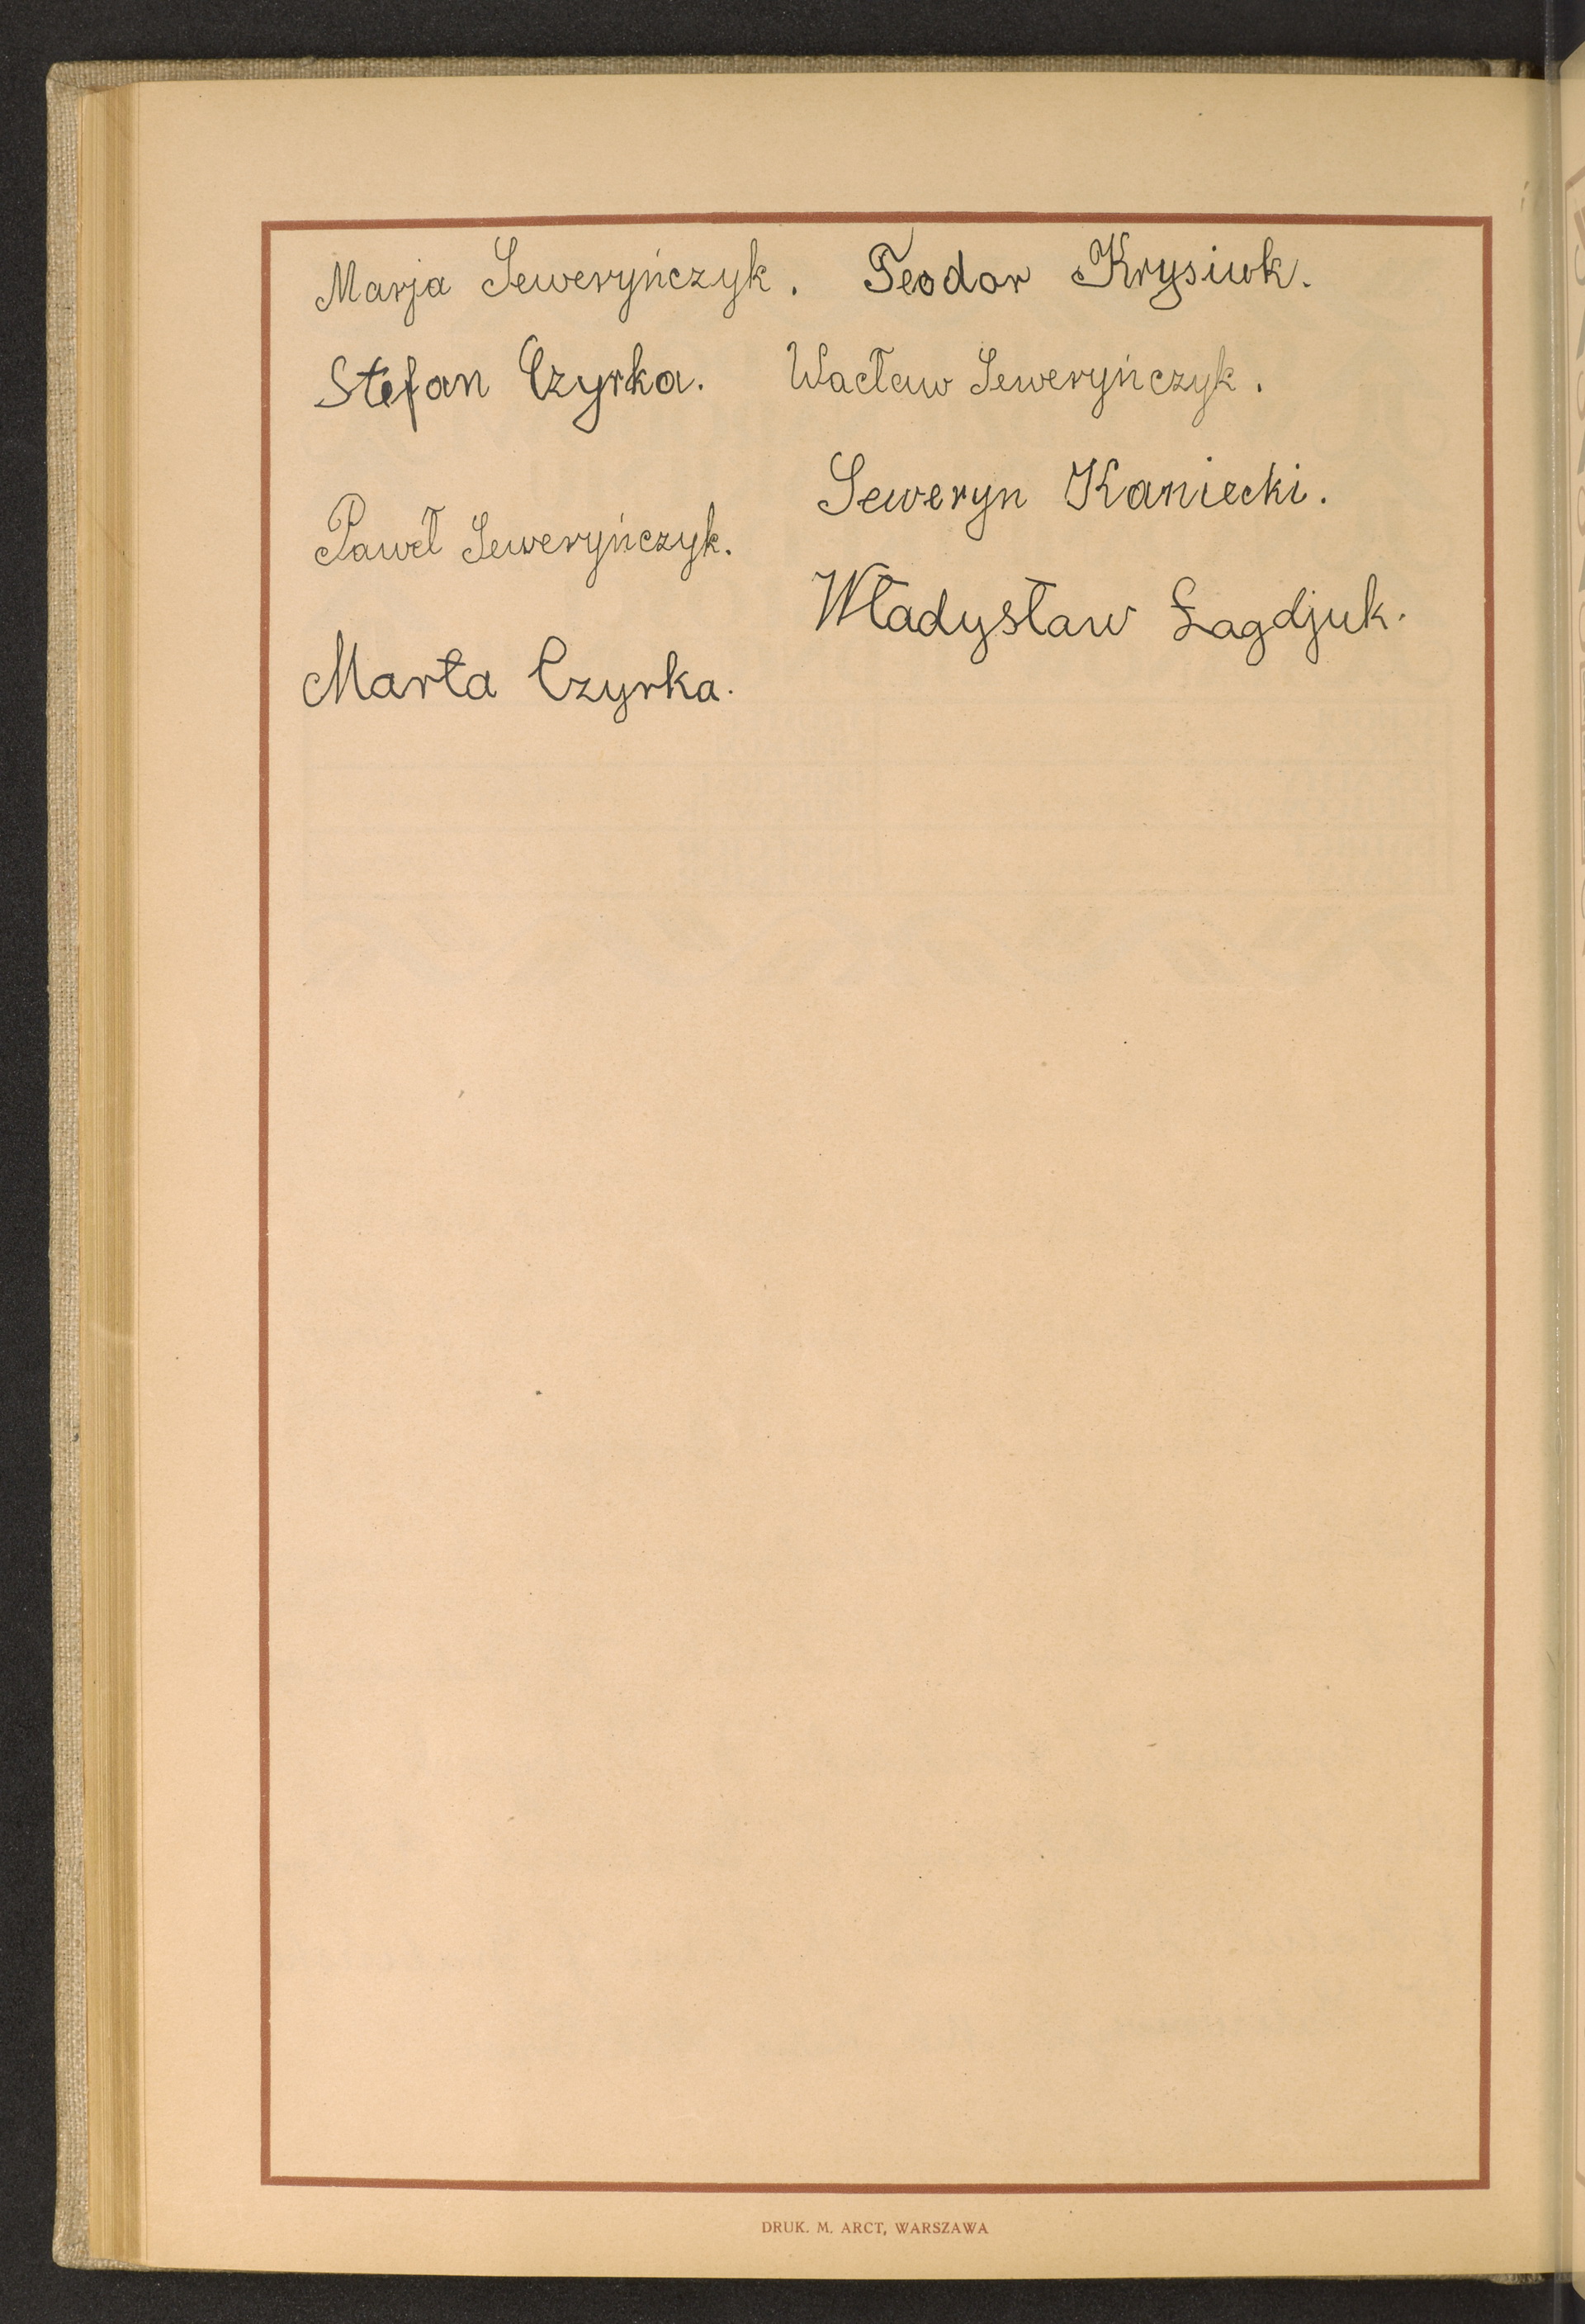 Marja Seweryńczyk. Teodor Krysiuk.
Stefan Czyrka. Wacław Seweryńczyk.
Seweryn Kaniecki.
Paweł Seweryńczyk.
Władysław Łagdjuk.
Marta Czyrka.
DRUK. M. ARCT, WARSZAWA